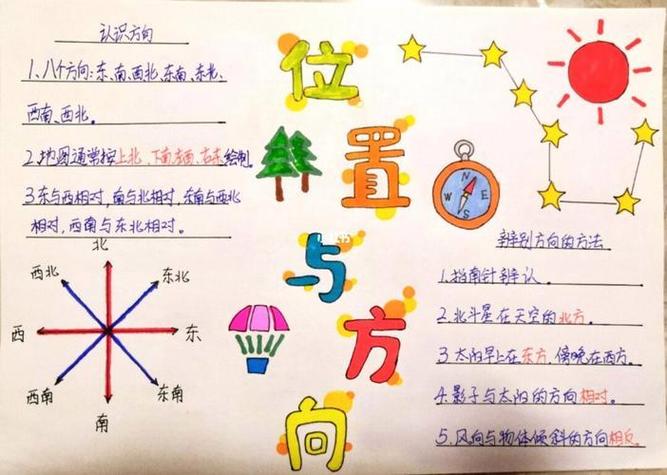 认识方向
1、八个方向:东、南、西北、东南、东北、
西南、西北。
2、地图通常按上北、下南、左西、右东绘制。
3、东与西相对,南与北相对,东南与西北
相对,西南与东北相对。
北
西北
东北
西
东
西南
东南
南
位
置
与
方
向
N
W
E
S
辨别方向的方法
1、指南针辨认。
2、北斗星在天空的北方。
3、太阳早上在东方,傍晚在西方。
4、影子与太阳的方向相对。
5、风向与物体倾斜的方向相反。